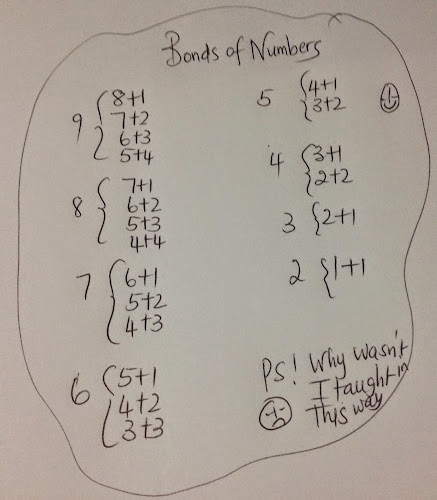 Bonds of Numbers
9 { 8+1
7+2
6+3
5+4
8 { 7+1
6+2
5+3
4+4
7 { 6+1
5+2
4+3
6 { 5+1
4+2
3+3
5 { 4+1
3+2
4 { 3+1
2+2
3 { 2+1
2 { 1+1
PS! Why wasn't
I taught in
This way